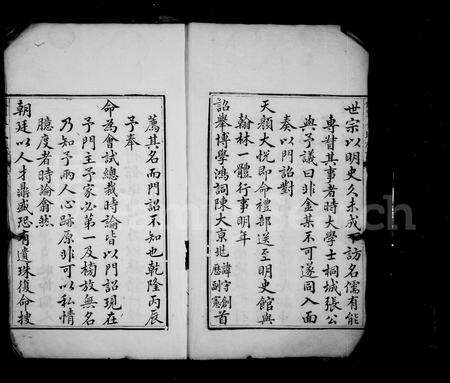 世宗以明史久未成訪名儒有能
專勷其事者時大學士桐城張公
與予議曰非金某不可遂同入面
奏以門詔對
天顏大悅即命禮部送至明史館與
翰林一體行事明年
詔舉博學鴻詞陳大京兆諱守創歷副憲首
薦其名而門詔不知也乾隆丙辰
予奉
命為會試總裁時論皆以門詔現在
予門主予家必第一及榜放無名
乃知予兩人心跡原非可以私情
臆度者時論翕然
朝廷以人才鼎盛恐有遺珠復命搜